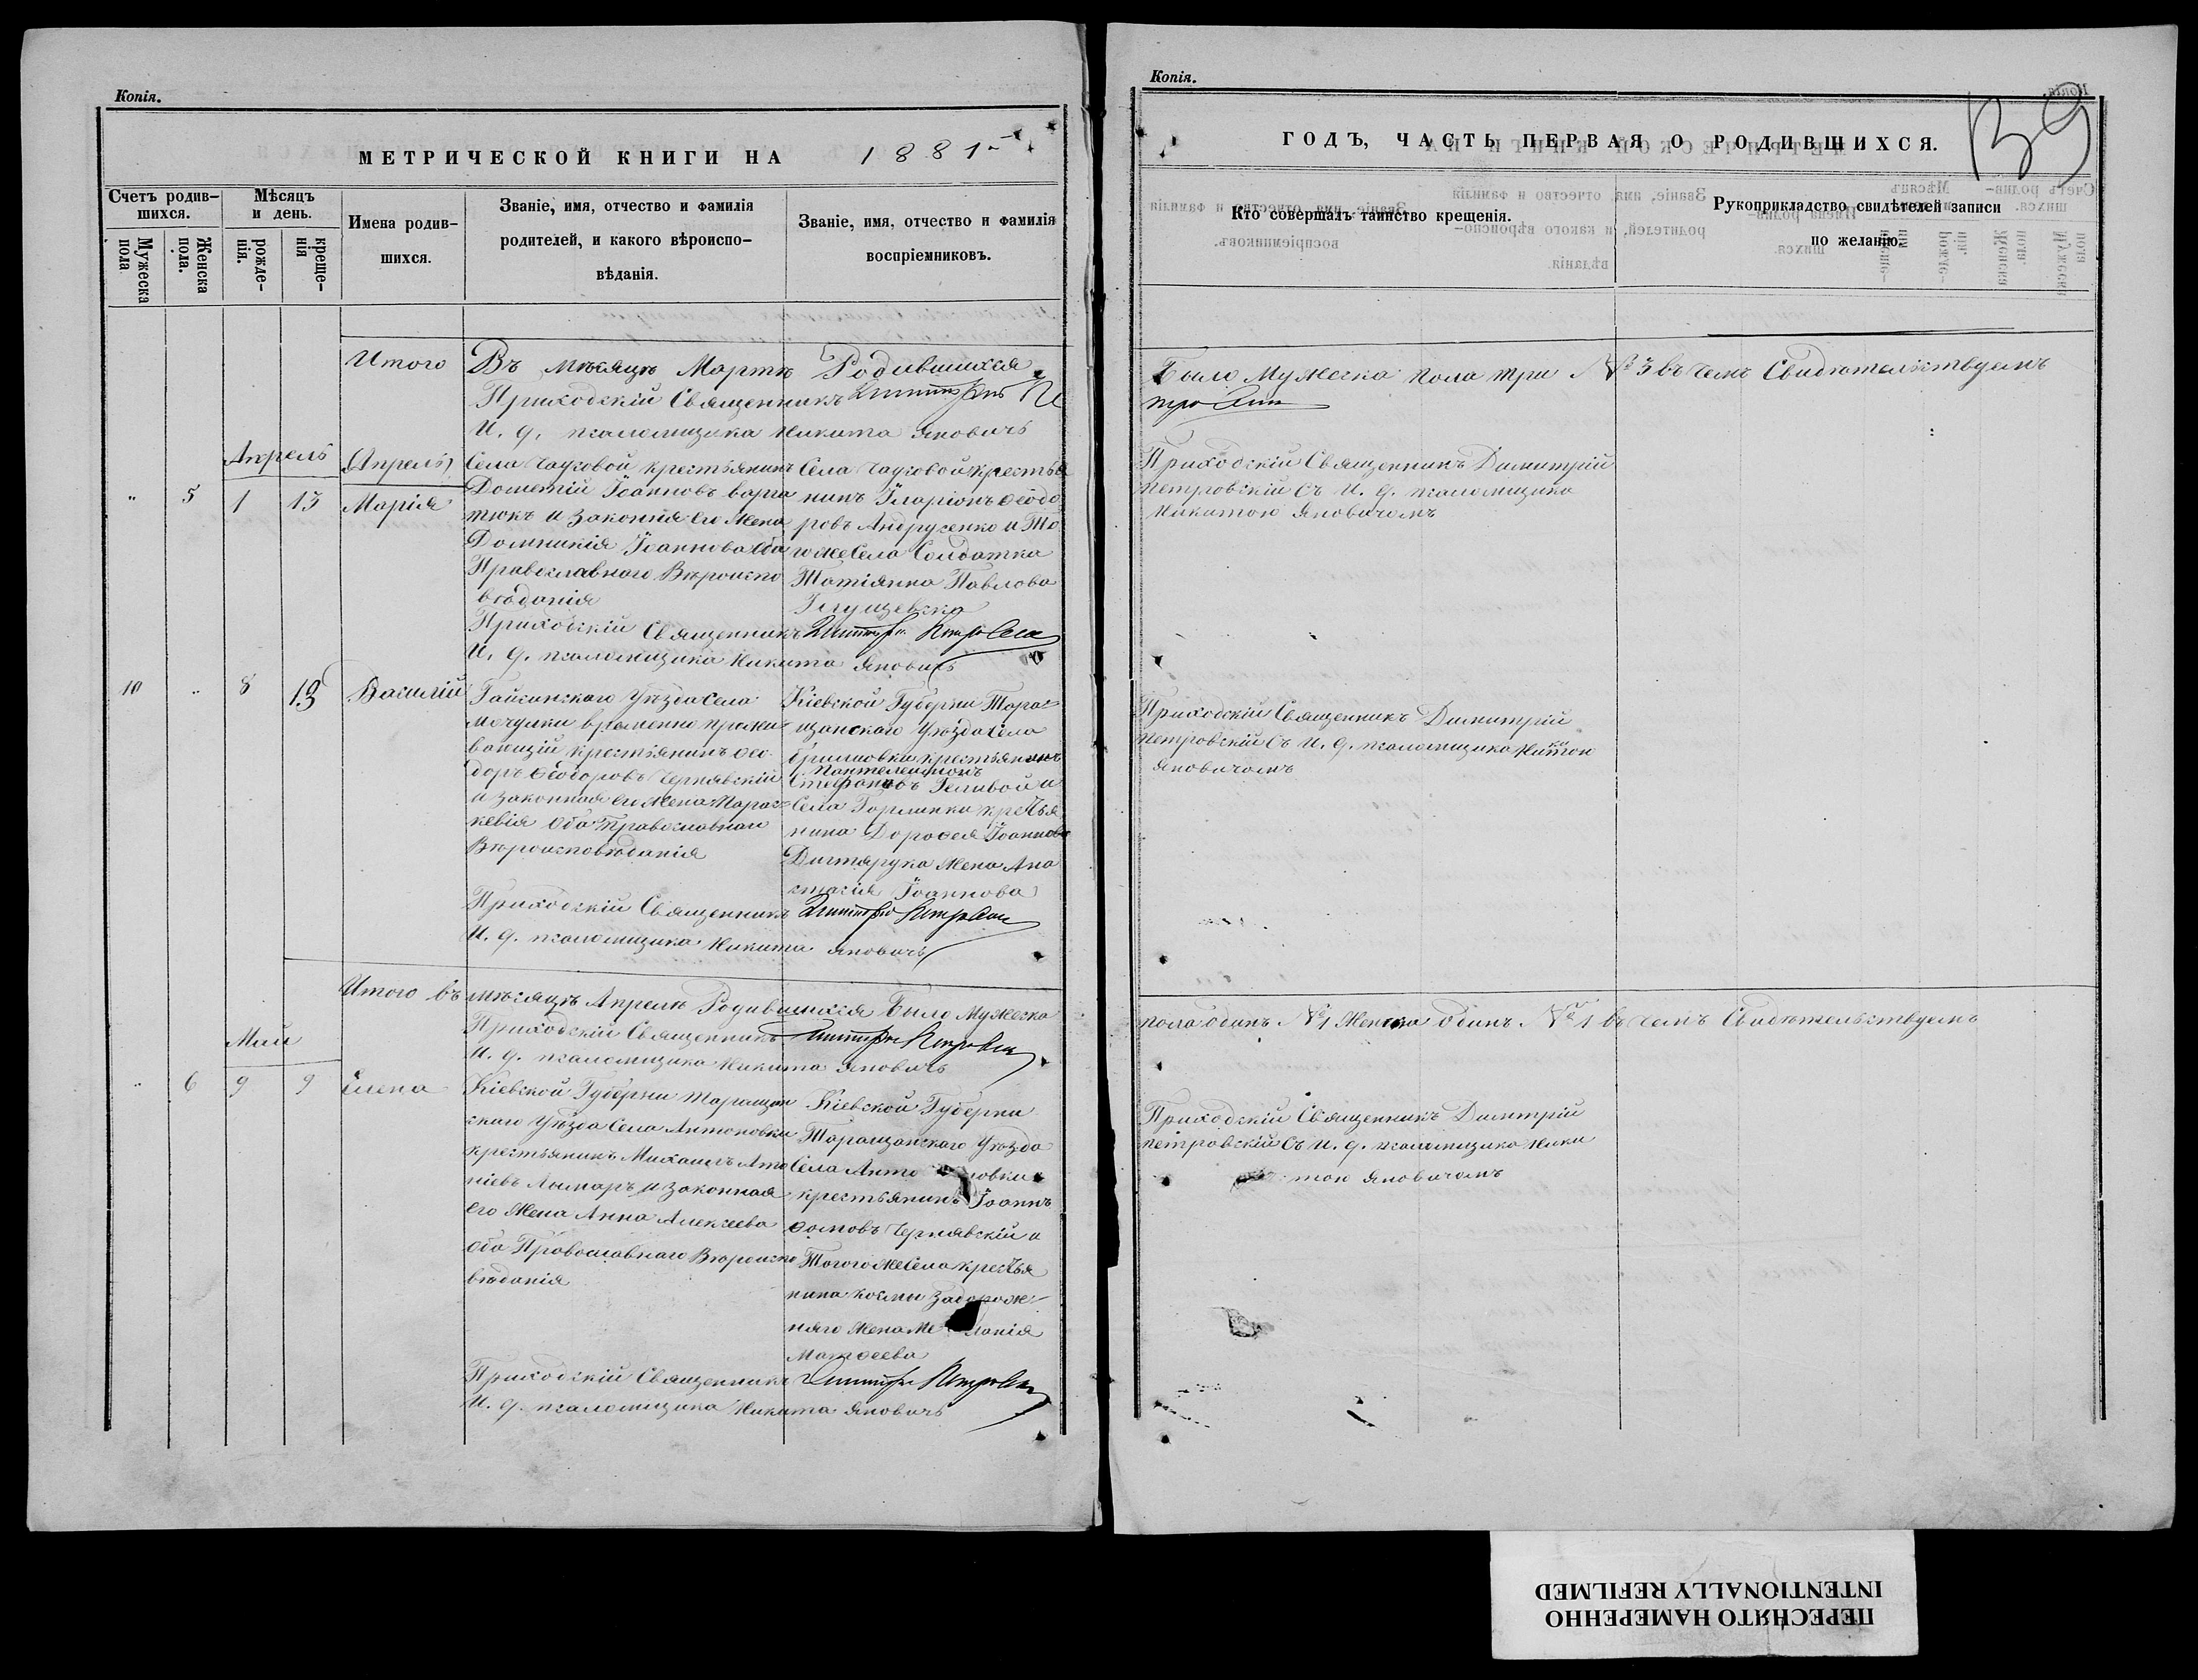 Копія.
МЕТРИЧЕСКОЙ КНИГИ НА 1881
Счетъ родив-
шихся.
Мѣсяцъ
и день.
Мужеска
пола
Женска
пола.
рожде-
нія.
креще-
нія
Имена родив-
шихся.
Званіе, имя, отчество и фамилія
родителей, и какого вѣроиспо-
вѣданія.
Званіе, имя, отчество и фамилія
воспріемниковъ.
Итого Въ мѣсяцѣ Мартѣ Родившихся
Приходскій Священникъ
И. д. псаломщика Никита Яновичъ
Апрель
Апрель
" 5 1 13 Марія
Села Чаусовой крестьянинъ
Дометій Іоанновъ Варга
тюкъ и законная его жена
Домникія Іоаннова оба
Православнаго Вѣроиспо
вѣданія
Села Чаусовой крестья
нинъ Іларіонъ Ѳеодо
ровъ Андрусенко и То
го же Села Солдатка
Татіянна Павлова
Приходскій Священникъ Димитрій Петровскій
И. д. псаломщика Никита Яновичъ
10 " 8 13 Василій
Гайсинскаго Уѣзда Села
Мочулки временно прожи
вающій крестьянинъ Ѳео
доръ Ѳеодоровъ Чернявскій
и законная его жена Парас
кевія оба Православнаго
Вѣроисповѣданія
Кіевской Губерніи Тара
щанскаго Уѣзда Села
крестьянинъ
Пантелеимонъ
Стефановъ и
Села крестья
нина Дороѳея Іоаннова
Дигтярука жена Ана
стасія Іоаннова
Приходскій Священникъ Димитрій Петровскій
И. д. псаломщика Никита Яновичъ
Итого въ мѣсяцѣ Апрелѣ Родившихся было Мужеска
Приходскій Священникъ Димитрій Петровскій
И. д. псаломщика Никита Яновичъ
Май
" 6 9 9 Елена
Кіевской Губерніи Таращан
скаго Уѣзда Села Антоновки
крестьянинъ Михаилъ
Лымарь и законная
его жена Анна Алексеева
оба Православнаго Вѣроиспо
вѣданія
Кіевской Губерніи
Таращанскаго Уѣзда
Села Анто новки
крестьянинъ Іоаннъ
Ѳомовъ Чернявскій и
Того же Села крестья
нина Космы Задорож
няго жена Ме ланія
Матѳеева
Приходскій Священникъ Димитрій Петровскій
И. д. псаломщика Никита Яновичъ
Копія.
ГОДЪ, ЧАСТЬ ПЕРВАЯ О РОДИВШИХСЯ.
139
Кто совершалъ таинство крещенія.
Рукоприкладство свидѣтелей записи
по желанію.
Было Мужеска пола три № 3 въ чемъ Свидѣтельствуемъ
Приходскій Священникъ Димитрій
Петровскій съ И. д. псаломщика
Никитою Яновичомъ
Приходскій Священникъ Димитрій
Петровскій съ И. д. псаломщика Никитою
Яновичомъ
пола одинъ №1 Женска одинъ №1 въ чемъ Свидѣтельствуемъ
Приходскій Священникъ Димитрій
Петровскій съ И. д. псаломщика Ники
тою Яновичомъ
ПЕРЕСНЯТО НАМЕРЕННО
INTENTIONALLY REFILMED